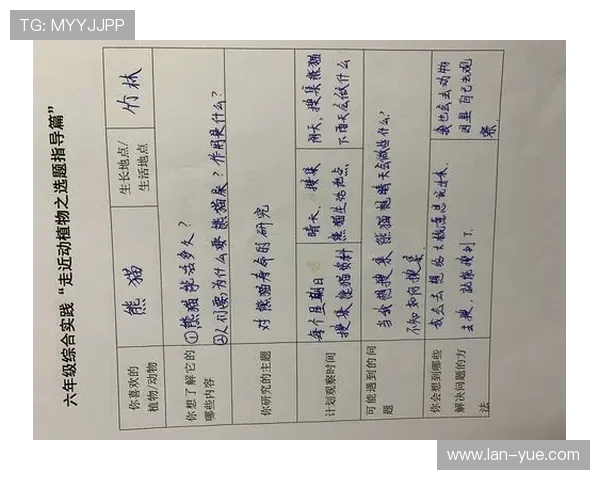 TG: MYYJJPP
六年级综合实践“走近动植物之选题指导篇”
你喜欢的
植物/动物
熊猫
生长地点/
生活地点
竹林
你想了解它的
哪些内容
①熊猫能活多久?
②人们要为什么要熊猫象?作用是什么?
你研究的主题
对熊猫寿命的研究
计划观察时间
每个星期日
搜集熊猫资料
晴天,搜集
熊猫生活地点
阴天,搜集熊猫
下雨天会做什么
可能遇到的问
题
当我想搜集熊猫晴天会做些什么?
不知如何搜集
你会想到哪些
解决问题的方
法
我会去想
去搜,就能搜到了.
我也会去动物
园里自己去观
察.
www.lan-yue.com